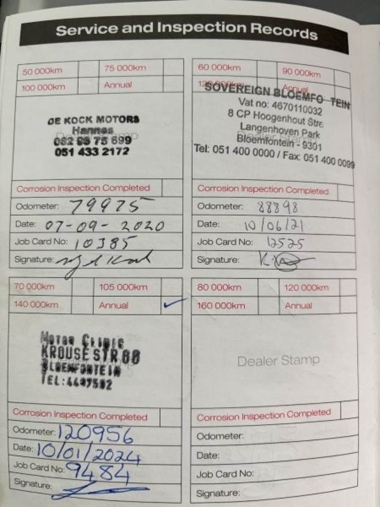 Service and Inspection Records
50 000km 75 000km
100 000km Annual
DE KOCK MOTORS
Hannes
082 93 75 699
051 433 2172
Corrosion Inspection Completed
Odometer: 79975
Date: 07-09-2020
Job Card No: 10385
Signature:
60 000km 90 000km
Annual
SOVEREIGN BLOEMFO TEIN
Vat no: 4670110032
8 CP Hoogenhout Stre
Langenhoven Park
Bloemfontein - 9301
Tel: 051 400 0000 / Fax: 051 400 0099
Corrosion Inspection Completed
Odometer: 88898
Date: 10/06/21
Job Card No: 12525
Signature:
70 000km 105 000km
140 000km Annual ✓
Motor Clinic
KROUSE STR.
BLOEMFONTEIN
TEL:4477502
Corrosion Inspection Completed
Odometer: 120956
Date: 10/01/2024
Job Card No: 9484
Signature:
80 000km 120 000km
160 000km Annual
Dealer Stamp
Corrosion Inspection Completed
Odometer:
Date:
Job Card No:
Signature: